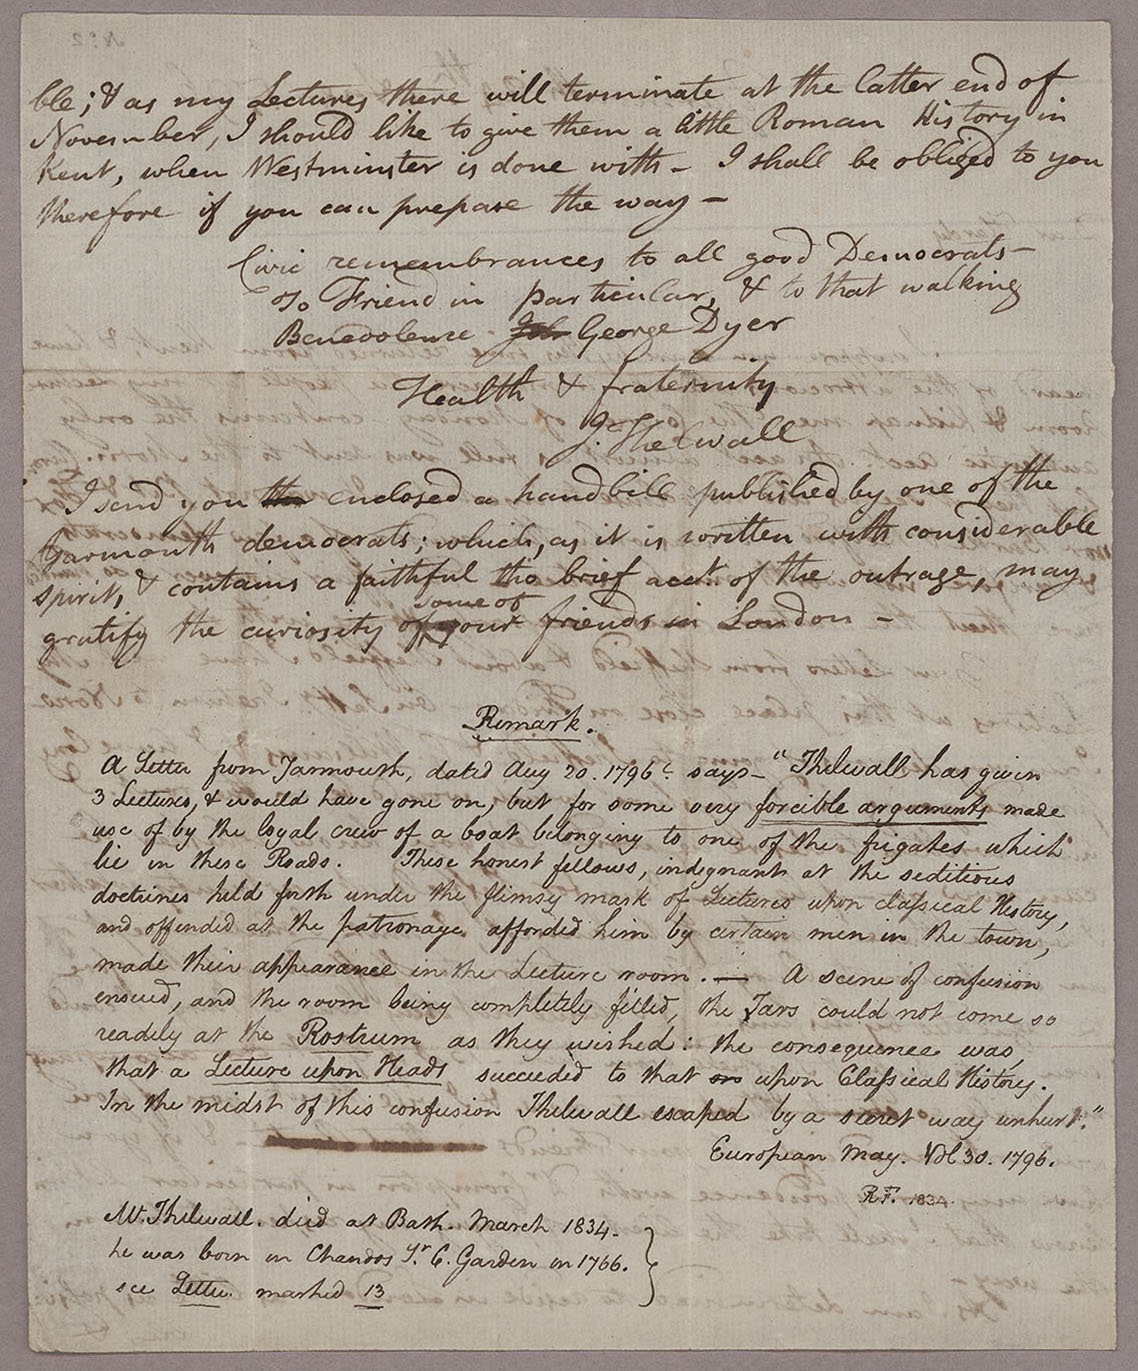 No. 2
ble; & as my Lectures there will terminate at the latter end of
November, I should like to give them a little Roman History in
Kent, when Westminster is done with - I shall be obliged to you
therefore if you can prepare the way -
Civic remembrances to all good Democrats -
To Friend in particular, & to that walking
Benevolence George Dyer
Health & fraternity
J. Thelwall
I send you the enclosed a handbill published by one of the
Yarmouth democrats; which, as it is written with considerable
spirit, & contains a faithful tho brief acct. of the outrage, may
some of
gratify the curiosity of your friends in London -
Remark.
A Letter from Yarmouth, dated Aug 20. 1796 says - "Thelwall has given
3 Lectures, & would have gone on, but for some very forcible arguments made
use of by the loyal crew of a boat belonging to one of the frigates which
lie in these Roads. These honest fellows, indignant at the seditious
doctrines held forth under the flimsy mask of Lectures upon classical History,
and offended at the patronage afforded him by certain men in the town,
made their appearance in the Lecture room. — A scene of confusion
ensued, and the room being completely filled, the Tars could not come so
readily at the Rostrum as they wished: the consequence was,
that a Lecture upon Heads succeeded to that on upon Classical History.
In the midst of this confusion Thelwall escaped by a secret way unhurt."
European May. Vol 30. 1796.
R.F. 1834.
Mr. Thelwall. died at Bath. March 1834.
he was born in Chandos St. C. Garden in 1766.
see Letter. marked 13